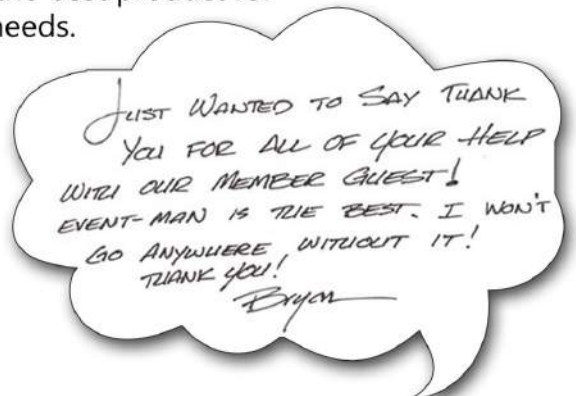 needs.
JUST WANTED TO SAY THANK
YOU FOR ALL OF YOUR HELP
WITH OUR MEMBER GUEST!
EVENT-MAN IS THE BEST. I WON'T
GO ANYWHERE, WITHOUT IT!
THANK YOU!
Bryan